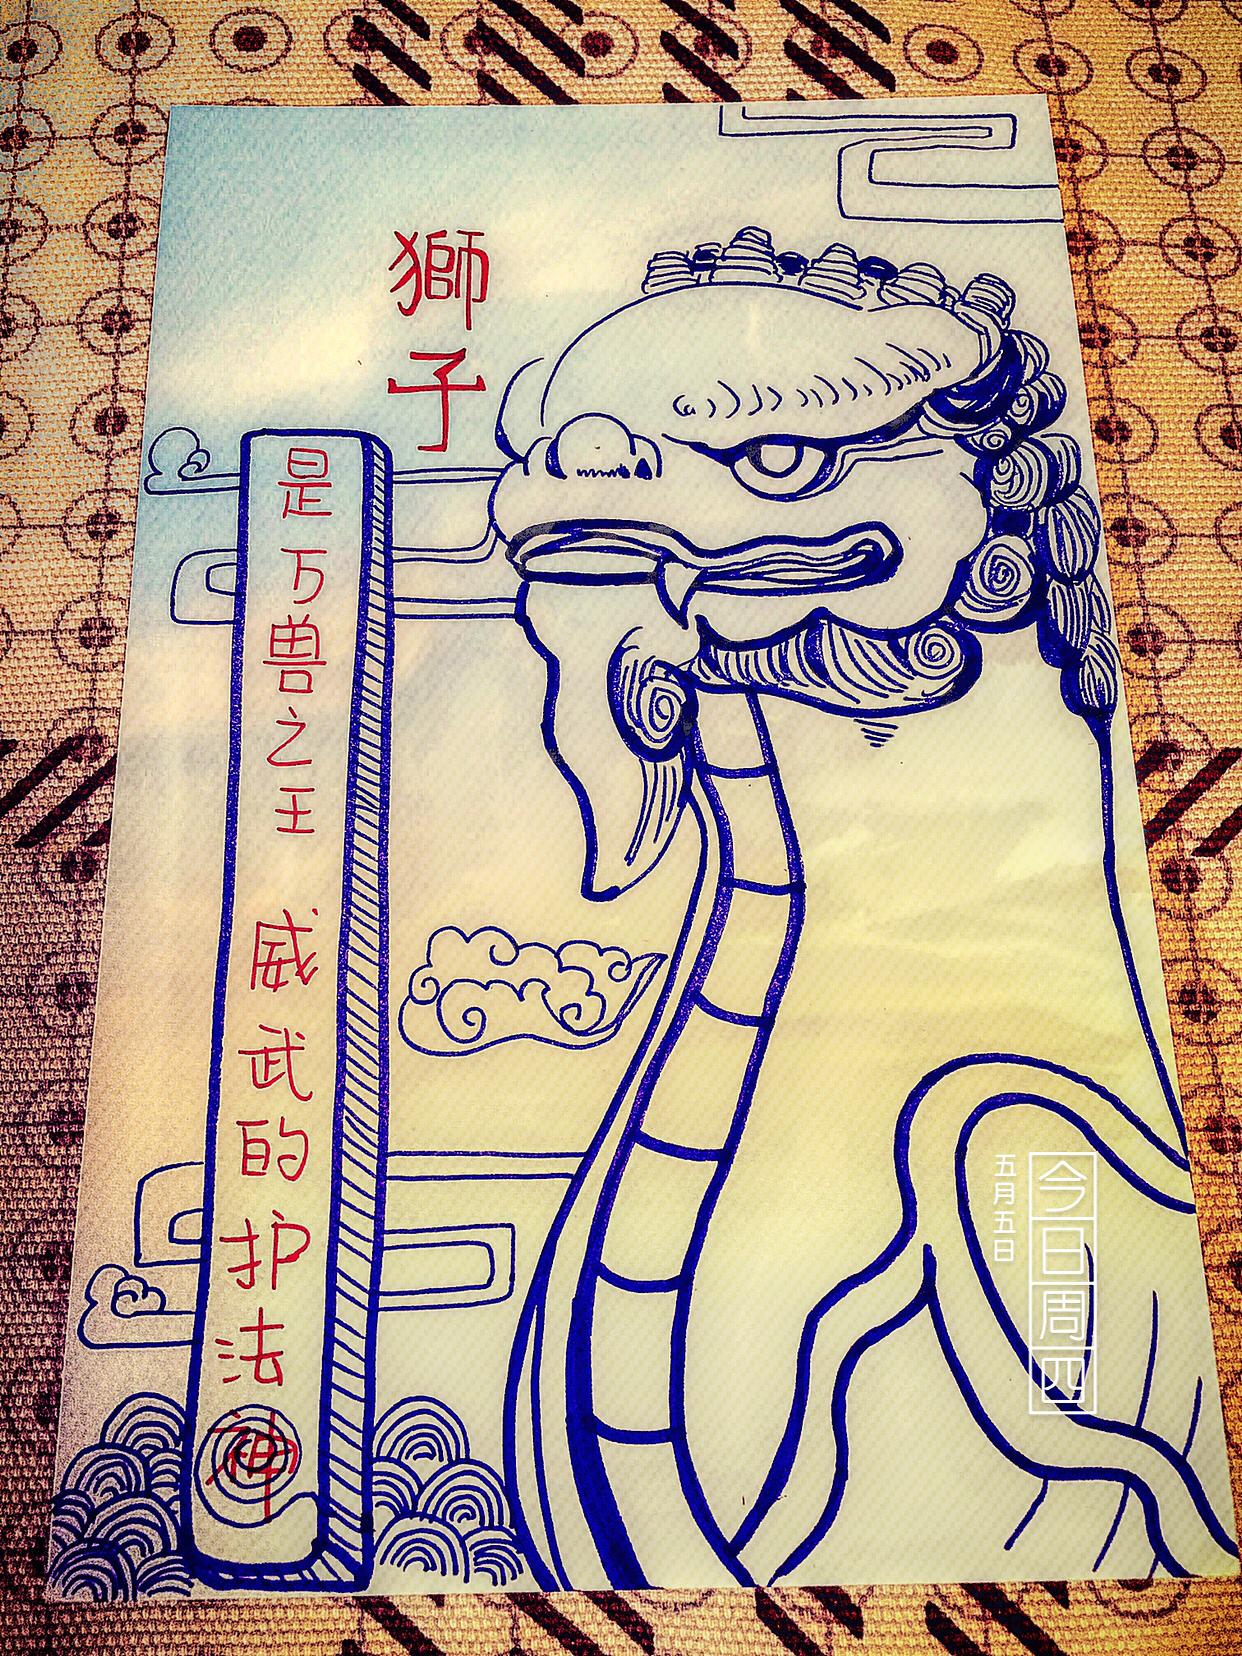 獅子
是万兽之王 威武的护法神
今日周四
五月五日